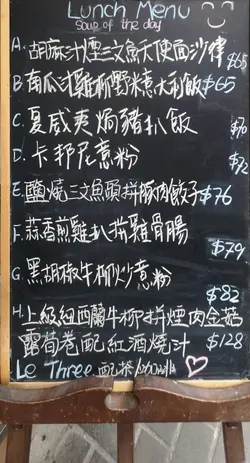 Lunch Menu
Soup of the day
A. 胡麻汁煙三文魚天使面沙律 $65
B. 南瓜汁雞柳野米意大利飯 $65
C. 夏威夷焗豬扒飯
D. 卡邦尼意粉 $72
E. 鹽燒三文魚頭拼豚肉餃子 $76
F. 蒜香煎雞扒拼雞骨腸 $79
G. 黑胡椒牛柳炒意粉 $82
H. 上級紐西蘭牛柳拼煙肉金菇
露荀卷配紅酒燒汁 $128
Le Three